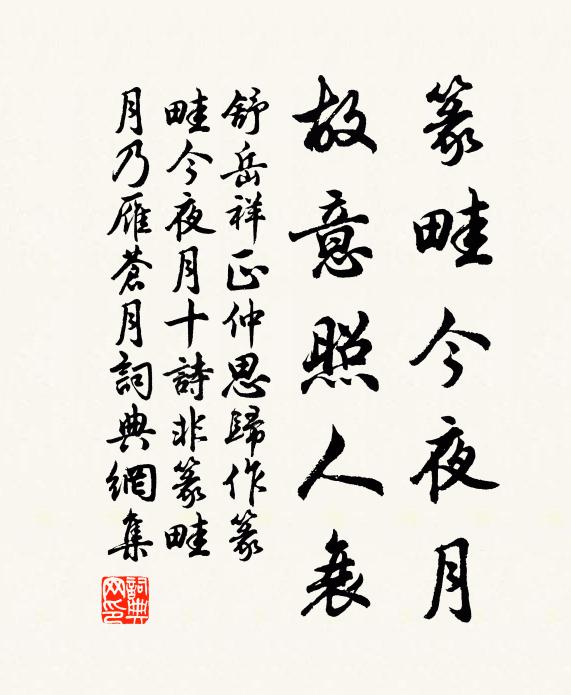 篆畦今夜月
故意照人衰
舒岳祥正仲思歸作篆
畦今夜月十詩非篆畦
月乃雁蒼月詞典網集
詞典網印